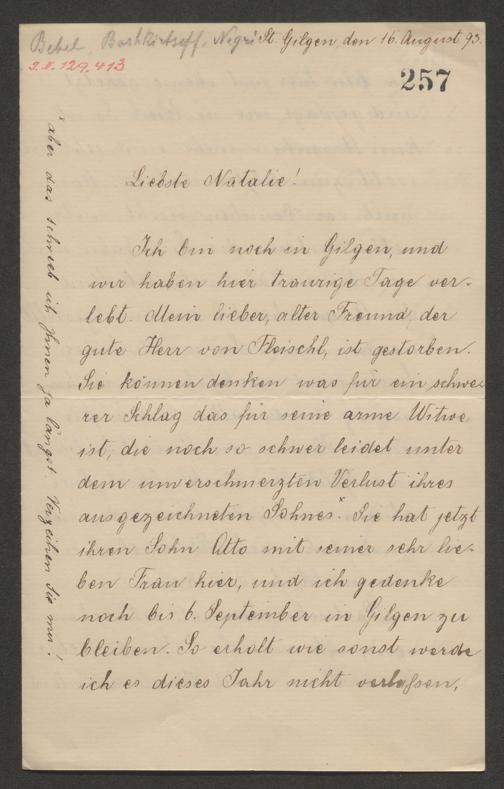 Bebel, Bashkirtseff, Negri
St. Gilgen, den 16. August 93.
J.N. 129.413
257
Liebste Natalie!
Ich bin noch in Gilgen, und
wir haben hier traurige Tage ver-
lebt. Mein lieber, alter Freund, der
gute Herr von Fleischl, ist gestorben.
Sie können denken was für ein schwe-
rer Schlag das für seine arme Witwe
ist, die noch so schwer leidet unter
dem unverschmerzten Verlust ihres
ausgezeichneten Sohnes.ˣ Sie hat jetzt
ihren Sohn Otto mit seiner sehr lie-
ben Frau hier, und ich gedenke
noch bis 6. September in Gilgen zu
bleiben. So erholt wie sonst werde
ich es dieses Jahr nicht verlassen,
ˣaber das schrieb ich Ihnen ja längst. Verzeihen Sie mir!